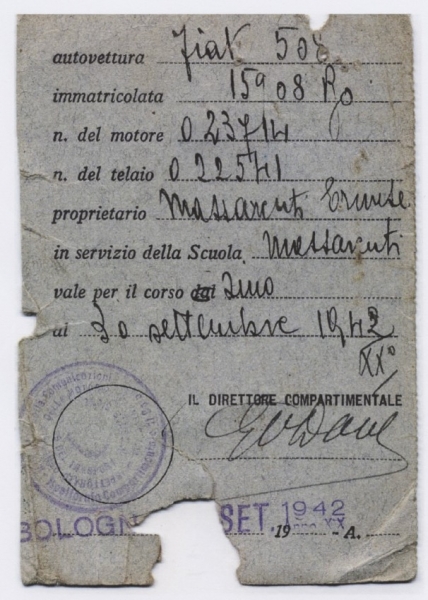 autovettura Fiat 508
immatricolata 15908 Ro
n. del motore 023714
n. del telaio 022571
proprietario Massarenti
in servizio della Scuola Massarenti
vale per il corso
al 30 settembre 1942
XX°
IL DIRETTORE COMPARTIMENTALE
BOLOGN SET. 1942
, 19 - A.